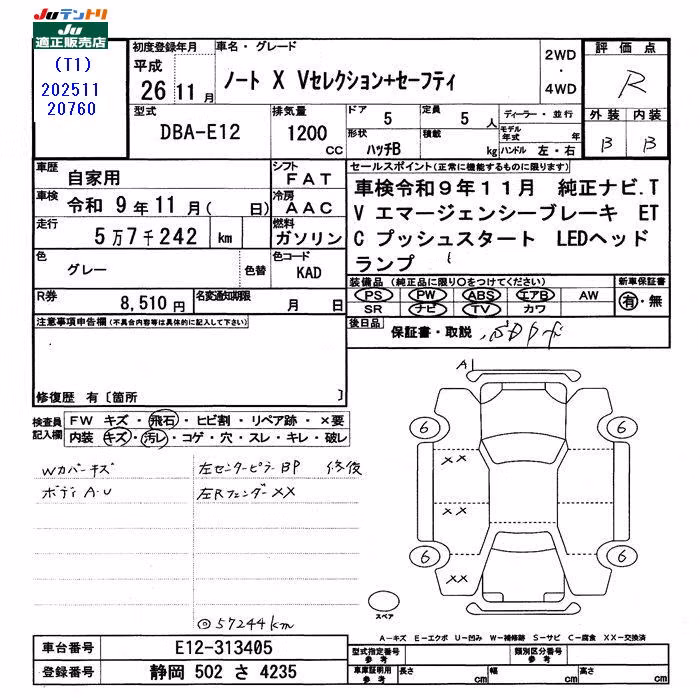 Juテントリ
Ju
適正販売店
(T1)
202511
20760
初度登録年月
平成
26 11 月
車名・グレード
ノート X Vセレクション+セーフティ
2WD
・
4WD
評価点
R
型式
DBA-E12
排気量
1200 CC
ドア
5
定員
5 人
形状
ハッチB
積載
kg
ディーラー・並行
モデル年式 年
ハンドル 左・右
外装 内装
B B
車歴
自家用
シフト
FAT
車検 令和 9年11月( 日)
冷房
AAC
走行
5万7千242 km
燃料
ガソリン
色
グレー
色替
色コード
KAD
R券
8,510円
名変通知期限
月 日
セールスポイント(正常に機能するものに限ります)
車検令和9年11月 純正ナビ.T
V エマージェンシーブレーキ ET
C プッシュスタート LEDヘッド
ランプ
装備品(純正品に限り○をつけてください)
PS PW ABS エアB AW
SR ナビ TV カワ
新車保証書
有・無
後日品
保証書・取説
注意事項申告欄(不具合内容等は具体的に記入して下さい)
修復歴 有〔箇所 〕
検査員
記入欄
FW キズ・飛石・ヒビ割・リペア跡・×要
内装 キズ・汚レ・コゲ・穴・スレ・キレ・破レ
Wカバーキズ
ボディA・U
左センターピラーBP 修復
左Rフェンダー××
◎57244km
A1
6 6
××
××
6 6
××
スペア
A-キズ E-エクボ U-凹み W-補修跡 S-サビ C-腐食 XX-交換済
車台番号
E12-313405
登録番号
静岡 502 さ 4235
型式指定番号
参考
類別区分番号
参考
車庫証明用
参考
長さ cm 幅 cm 高さ cm